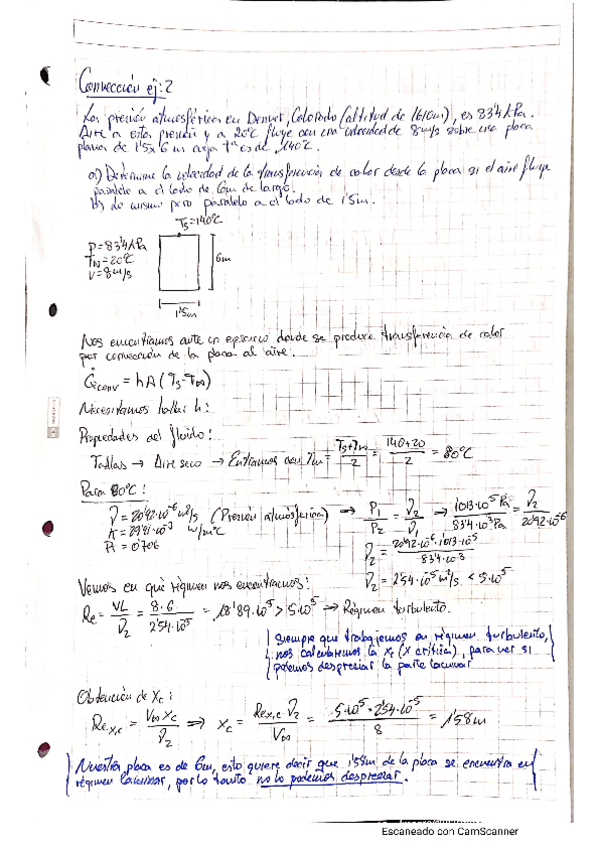 Convección ej:2
La presión atmosférica en Denver, Colorado (altitud de 1610m), es 83'4 kPa.
Aire a esta presión y a 20ºC fluye con una velocidad de 8m/s sobre una placa
plana de 1'5x6m cuya Tª es de 140ºC.
a) Determine la velocidad de la transferencia de calor desde la placa si el aire fluye
paralelo a el lado de 6m de largo.
b) Lo mismo pero paralelo a el lado de 1'5m.
Ts=140ºC
P=83'4kPa
T∞=20ºC
V=8m/s
6m
1'5m
Nos encontramos ante un ejercicio donde se produce transferencia de calor
por convección de la placa al aire.
Q̇conv = hA(Ts-T∞)
Necesitamos hallar h:
Propiedades del fluido:
Tablas → Aire seco → Entramos con Tm = (Ts+T∞)/2 = (140+20)/2 = 80ºC
Para 80ºC:
ν = 20'92·10⁻⁶ m²/s (Presión atmosférica) → P1/P2 = ν2/ν1 → 1'013·10⁵ Pa/83'4·10³Pa = ν2/20'92·10⁻⁶
Pr = 0'706
ν2 = 20'92·10⁻⁶·1'013·10⁵/83'4·10³
ν2 = 2'54·10⁻⁵ m²/s < 5·10⁵
Vemos en qué régimen nos encontramos:
Re = VL/ν2 = 8·6/2'54·10⁻⁵ = 18'89·10⁵ > 5·10⁵ → Régimen turbulento.
Siempre que trabajemos en régimen turbulento,
nos calcularemos la xc (x crítica), para ver si
podemos despreciar la parte laminar
Obtención de Xc:
Rex,c = V∞ Xc/ν2 ⇒ Xc = Rex,c·ν2/V∞ = 5·10⁵·2'54·10⁻⁵/8 = 1'58m
Nuestra placa es de 6m, esto quiere decir que 1'58m de la placa se encuentra en
régimen laminar, por lo tanto no lo podemos despreciar.
Escaneado con CamScanner